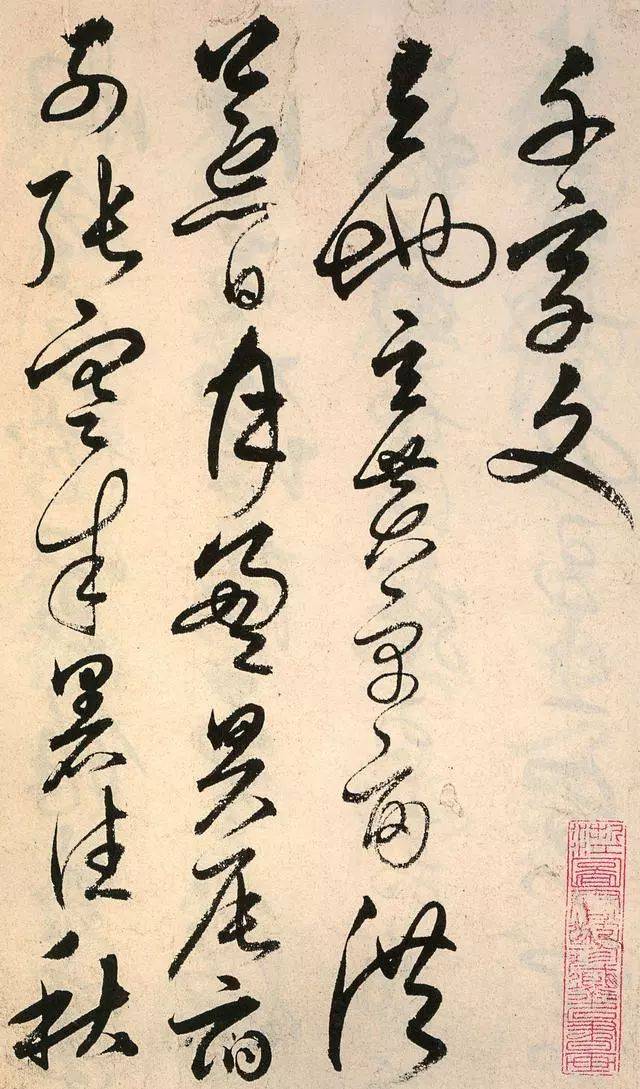 千字文
天地玄黃宇宙洪
荒日月盈昃辰宿
列張寒來暑往秋